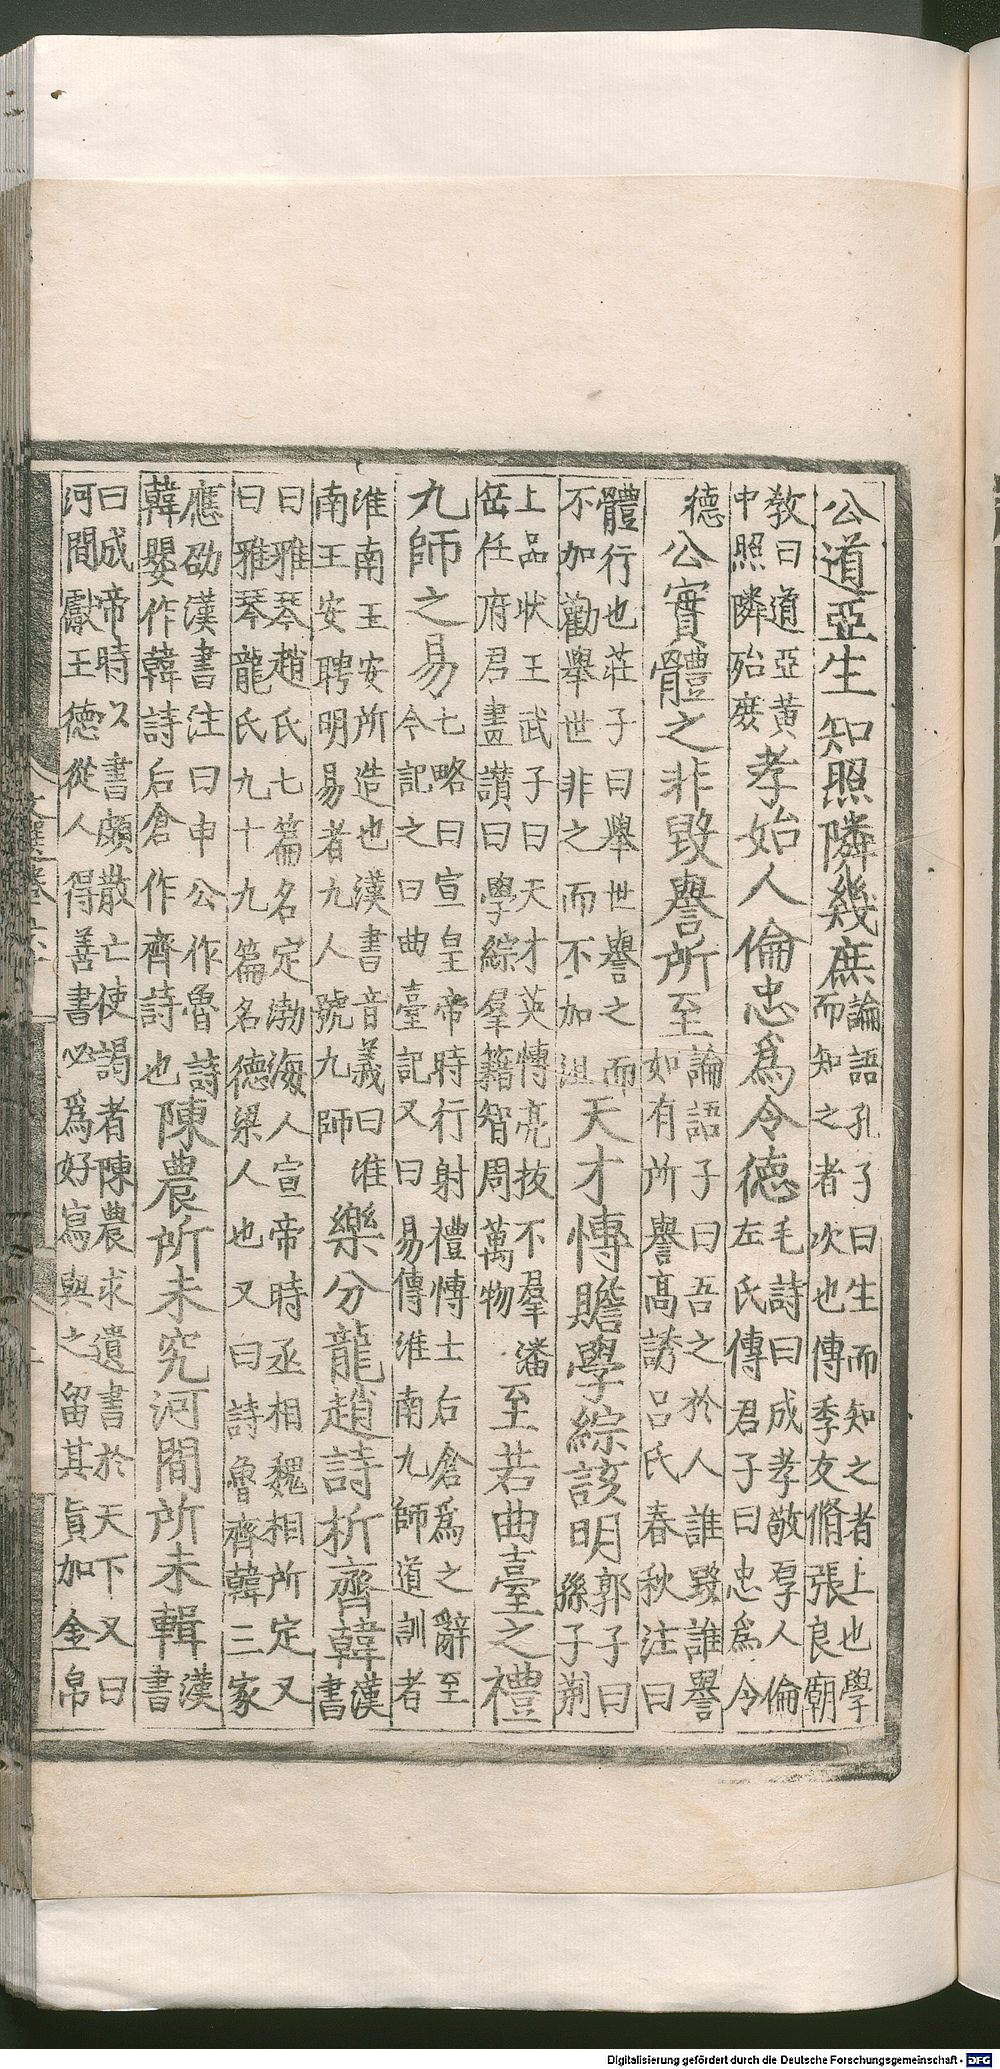 公道亞生知照隣幾庶論語孔子曰生而知之者上也學而知之者次也傳季友脩張良廟
教曰道亞黄中照隣殆庶孝始人倫忠爲令德毛詩曰成孝敬厚人倫左氏傳君子曰忠爲令
德公實體之非毀譽所至論語子曰吾之於人誰毀誰譽如有所譽高誘吕氏春秋注曰
體行也莊子曰舉世譽之而不加勸舉世非之而不加沮天才博贍學綜該明郭子曰孫子荆
上品狀王武子曰天才英博亮拔不羣潘岳任府君畫讃曰學綜羣籍智周萬物至若曲臺之禮
九師之易七略曰宣皇帝時行射禮博士后倉爲之辭至今記之曰曲臺記又曰易傳淮南九師道訓者
淮南王安所造也漢書音義曰淮南王安聘明易者九人號九師樂分龍趙詩析齊韓漢書
曰雅琴趙氏七篇名定渤海人宣帝時丞相魏相所定又曰雅琴龍氏九十九篇名德梁人也又曰詩魯齊韓三家
應劭漢書注曰申公作魯詩韓嬰作韓詩后倉作齊詩也陳農所未究河間所未輯漢書
曰成帝時以書頗散亡使謁者陳農求遺書於天下又曰河間獻王德從人得善書必爲好寫與之留其眞加金帛
Digitalisierung gefördert durch die Deutsche Forschungsgemeinschaft - DFG